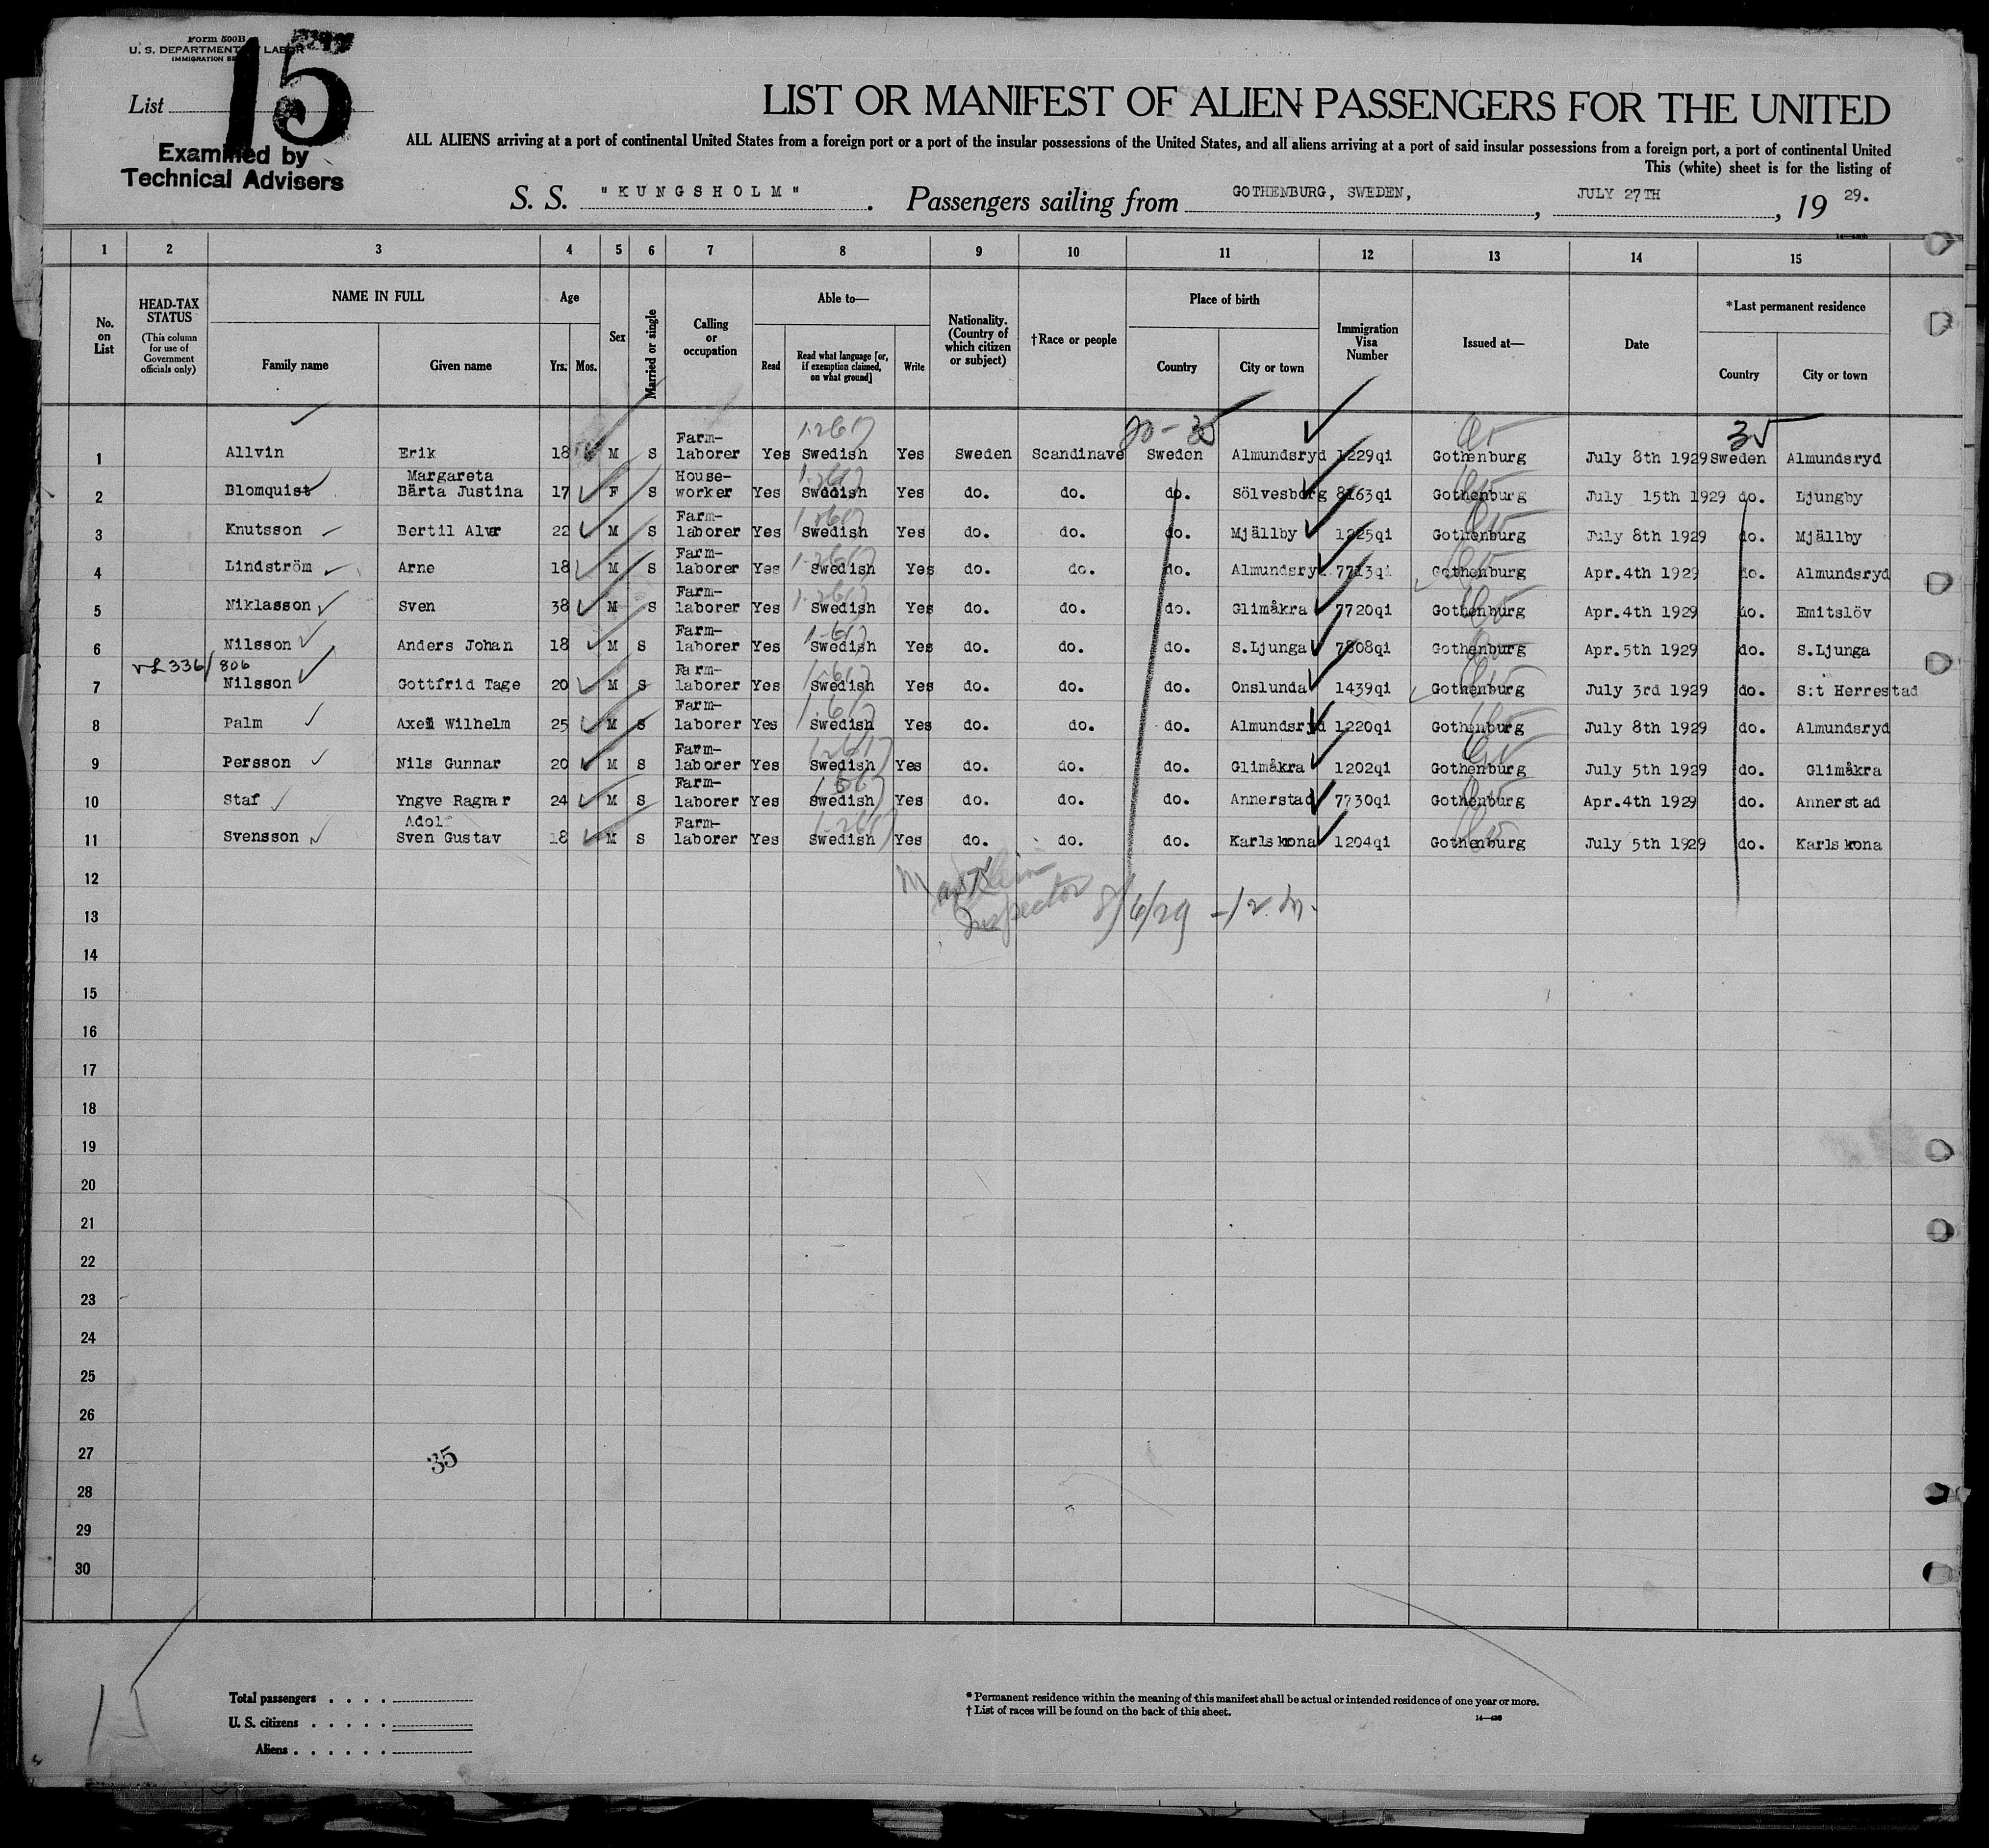 Form 500B
U. S. DEPARTMENT LABOR
IMMIGRATION
List 15
Examined by
Technical Advisers
LIST OR MANIFEST OF ALIEN PASSENGERS FOR THE UNITED
ALL ALIENS arriving at a port of continental United States from a foreign port or a port of the insular possessions of the United States, and all aliens arriving at a port of said insular possessions from a foreign port, a port of continental United
This (white) sheet is for the listing of
S. S. "KUNGSHOLM". Passengers sailing from GOTHENBURG, SWEDEN, , JULY 27TH , 19 29.
1 2 3 4 5 6 7 8 9 10 11 12 13 14 15
No. on List
HEAD-TAX STATUS
(This column for use of Government officials only)
NAME IN FULL
Family name Given name
Age
Yrs. Mos.
Sex
Married or single
Calling or occupation
Able to—
Read Read what language [or, if exemption claimed, on what ground] Write
Nationality. (Country of which citizen or subject)
†Race or people
Place of birth
Country City or town
Immigration Visa Number
Issued at—
Date
*Last permanent residence
Country City or town
1 Allvin Erik 18 M S Farm-laborer Yes Swedish Yes Sweden Scandinave Sweden Almundsryd 1229qi Gothenburg July 8th 1929 Sweden Almundsryd
2 Blomquist Margareta Bärta Justina 17 F S House-worker Yes Swedish Yes do. do. do. Sölvesborg 8163qi Gothenburg July 15th 1929 do. Ljungby
3 Knutsson Bertil Alvar 22 M S Farm-laborer Yes Swedish Yes do. do. do. Mjällby 1225qi Gothenburg July 8th 1929 do. Mjällby
4 Lindström Arne 18 M S Farm-laborer Yes Swedish Yes do. do. do. Almundsryd 7713qi Gothenburg Apr.4th 1929 do. Almundsryd
5 Niklasson Sven 38 M S Farm-laborer Yes Swedish Yes do. do. do. Glimåkra 7720qi Gothenburg Apr.4th 1929 do. Emitslöv
6 Nilsson Anders Johan 18 M S Farm-laborer Yes Swedish Yes do. do. do. S.Ljunga 7808qi Gothenburg Apr.5th 1929 do. S.Ljunga
336/806
7 Nilsson Gottfrid Tage 20 M S Farm-laborer Yes Swedish Yes do. do. do. Onslunda 1439qi Gothenburg July 3rd 1929 do. S:t Herrestad
8 Palm Axel Wilhelm 25 M S Farm-laborer Yes Swedish Yes do. do. do. Almundsryd 1220qi Gothenburg July 8th 1929 do. Almundsryd
9 Persson Nils Gunnar 20 M S Farm-laborer Yes Swedish Yes do. do. do. Glimåkra 1202qi Gothenburg July 5th 1929 do. Glimåkra
10 Staf Yngve Ragnar 24 M S Farm-laborer Yes Swedish Yes do. do. do. Annerstad 7730qi Gothenburg Apr.4th 1929 do. Annerstad
11 Svensson Adolf Sven Gustav 18 M S Farm-laborer Yes Swedish Yes do. do. do. Karlskrona 1204qi Gothenburg July 5th 1929 do. Karlskrona
12
Inspector 8/6/29
13
14
15
16
17
18
19
20
21
22
23
24
25
26
27
35
28
29
30
15
Total passengers . . . .
U. S. citizens . . . . .
Aliens . . . . . .
* Permanent residence within the meaning of this manifest shall be actual or intended residence of one year or more.
† List of races will be found on the back of this sheet.